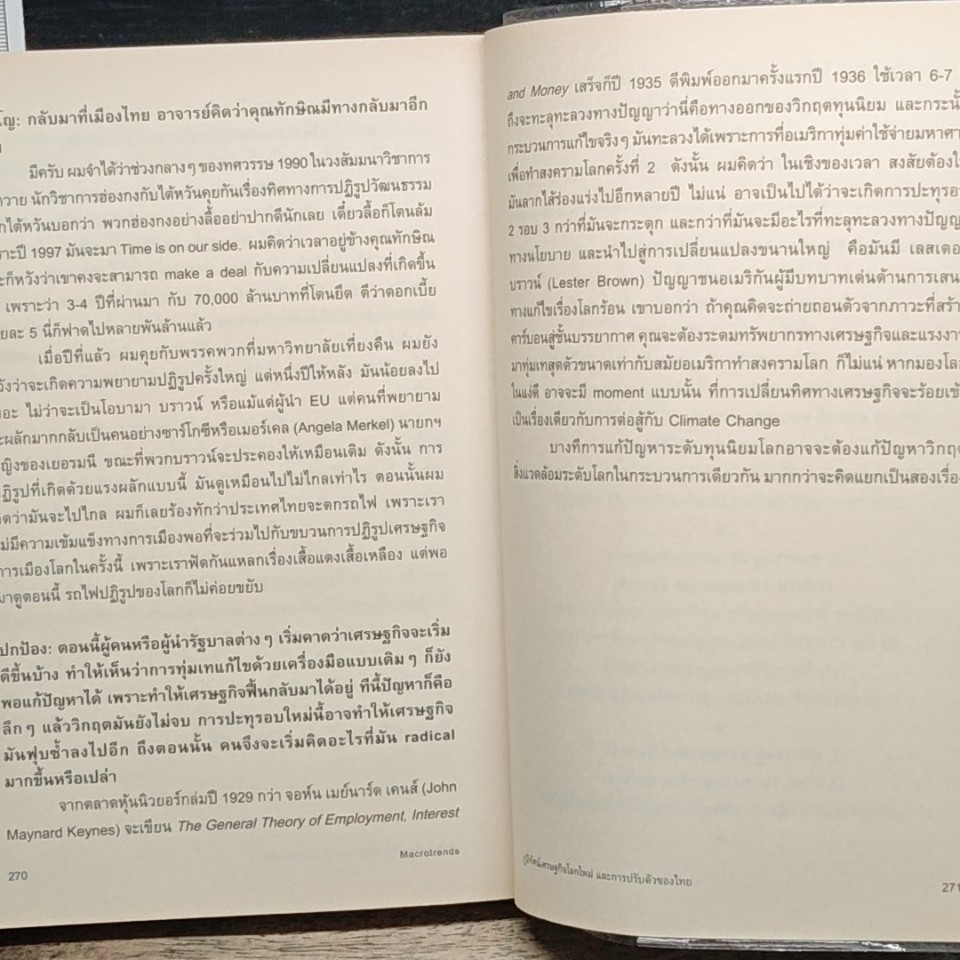 ญ: กลับมาที่เมืองไทย อาจารย์คิดว่าคุณทักษิณมีทางกลับมาอีก
มีครับ ผมจำได้ว่าช่วงกลางๆ ของทศวรรษ 1990 ในวงสัมมนาวิชาการ
วาย นักวิชาการฮ่องกงกับไต้หวันคุยกันเรื่องทิศทางการปฏิรูปวัฒนธรรม
กไต้หวันบอกว่า พวกฮ่องกงอย่างลื้ออย่าปากดีนักเลย เดี๋ยวลื้อก็โดนล้ม
ราะปี 1997 มันจะมา Time is on our side. ผมคิดว่าเวลาอยู่ข้างคุณทักษิณ
ะก็หวังว่าเขาคงจะสามารถ make a deal กับความเปลี่ยนแปลงที่เกิดขึ้น
เพราะว่า 3-4 ปีที่ผ่านมา กับ 70,000 ล้านบาทที่โดนยึด ตีว่าดอกเบี้ย
ยละ 5 นี่ก็ฟาดไปหลายพันล้านแล้ว
เมื่อปีที่แล้ว ผมคุยกับพรรคพวกที่มหาวิทยาลัยเที่ยงคืน ผมยัง
วังว่าจะเกิดความพยายามปฏิรูปครั้งใหญ่ แต่หนึ่งปีให้หลัง มันน้อยลงไป
ยอะ ไม่ว่าจะเป็นโอบามา บราวน์ หรือแม้แต่ผู้นำ EU แต่คนที่พยายาม
ะผลักมากกลับเป็นคนอย่างซาร์โกซีหรือเมอร์เคล (Angela Merkel) นายกฯ
ญิงของเยอรมนี ขณะที่พวกบราวน์จะประคองให้เหมือนเดิม ดังนั้น การ
ฏิรูปที่เกิดด้วยแรงผลักแบบนี้ มันดูเหมือนไปไม่ไกลเท่าไร ตอนนั้นผม
คิดว่ามันจะไปไกล ผมก็เลยร้องทักว่าประเทศไทยจะตกรถไฟ เพราะเรา
ม่มีความเข้มแข็งทางการเมืองพอที่จะร่วมไปกับขบวนการปฏิรูปเศรษฐกิจ
การเมืองโลกในครั้งนี้ เพราะเราฟัดกันแหลกเรื่องเสื้อแดงเสื้อเหลือง แต่พอ
มาดูตอนนี้ รถไฟปฏิรูปของโลกก็ไม่ค่อยขยับ
ปกป้อง: ตอนนี้ผู้คนหรือผู้นำรัฐบาลต่างๆ เริ่มคาดว่าเศรษฐกิจจะเริ่ม
ดีขึ้นบ้าง ทำให้เห็นว่าการทุ่มเทแก้ไขด้วยเครื่องมือแบบเดิมๆ ก็ยัง
พอแก้ปัญหาได้ เพราะทำให้เศรษฐกิจฟื้นกลับมาได้อยู่ ทีนี้ปัญหาก็คือ
ลึกๆ แล้ววิกฤตมันยังไม่จบ การปะทุรอบใหม่นี้อาจทำให้เศรษฐกิจ
มันฟุบซ้ำลงไปอีก ถึงตอนนั้น คนจึงจะเริ่มคิดอะไรที่มัน radical
มากขึ้นหรือเปล่า
จากตลาดหุ้นนิวยอร์กล่มปี 1929 กว่า จอห์น เมย์นาร์ด เคนส์ (John
Maynard Keynes) จะเขียน The General Theory of Employment, Interest
Macrotrends
270
and Money เสร็จก็ปี 1935 ตีพิมพ์ออกมาครั้งแรกปี 1936 ใช้เวลา 6-7
ถึงจะทะลุทะลวงทางปัญญาว่านี่คือทางออกของวิกฤตทุนนิยม และกระนั้
กระบวนการแก้ไขจริงๆ มันทะลวงได้เพราะการที่อเมริกาทุ่มค่าใช้จ่ายมหาศา
เพื่อทำสงครามโลกครั้งที่ 2 ดังนั้น ผมคิดว่า ในเชิงของเวลา สงสัยต้องใ
มันลากไส้ร่องแร่งไปอีกหลายปี ไม่แน่ อาจเป็นไปได้ว่าจะเกิดการปะทุรอ
2 รอบ 3 กว่าที่มันจะกระตุก และกว่าที่มันจะมีอะไรที่ทะลุทะลวงทางปัญญ
ทางนโยบาย และนำไปสู่การเปลี่ยนแปลงขนานใหญ่ คือมันมี เลสเตอ
บราวน์ (Lester Brown) ปัญญาชนอเมริกันผู้มีบทบาทเด่นด้านการเสน
ทางแก้ไขเรื่องโลกร้อน เขาบอกว่า ถ้าคุณคิดจะถ่ายถอนตัวจากภาวะที่สร้า
คาร์บอนสู่ชั้นบรรยากาศ คุณจะต้องระดมทรัพยากรทางเศรษฐกิจและแรงงา
มาทุ่มเทสุดตัวขนาดเท่ากับสมัยอเมริกาทำสงครามโลก ก็ไม่แน่ หากมองโล
ในแง่ดี อาจจะมี moment แบบนั้น ที่การเปลี่ยนทิศทางเศรษฐกิจจะร้อยเข้
เป็นเรื่องเดียวกับการต่อสู้กับ Climate Change
บางทีการแก้ปัญหาระดับทุนนิยมโลกอาจจะต้องแก้ปัญหาวิกฤ
สิ่งแวดล้อมระดับโลกในกระบวนการเดียวกัน มากกว่าจะคิดแยกเป็นสองเรื่อ
ภูมิทัศน์เศรษฐกิจโลกใหม่ และการปรับตัวของไทย
271